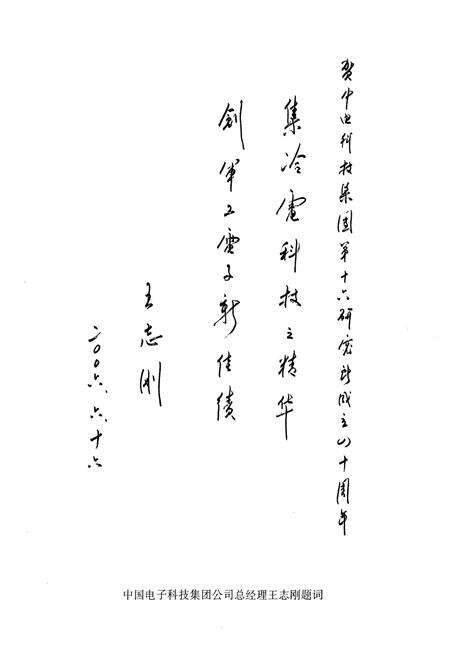 贺中电科技集团第十六研究所成立四十周年
集冷電科技之精华
創军工電子新佳绩
王志刚
二〇〇六、六、十六
中国电子科技集团公司总经理王志刚题词